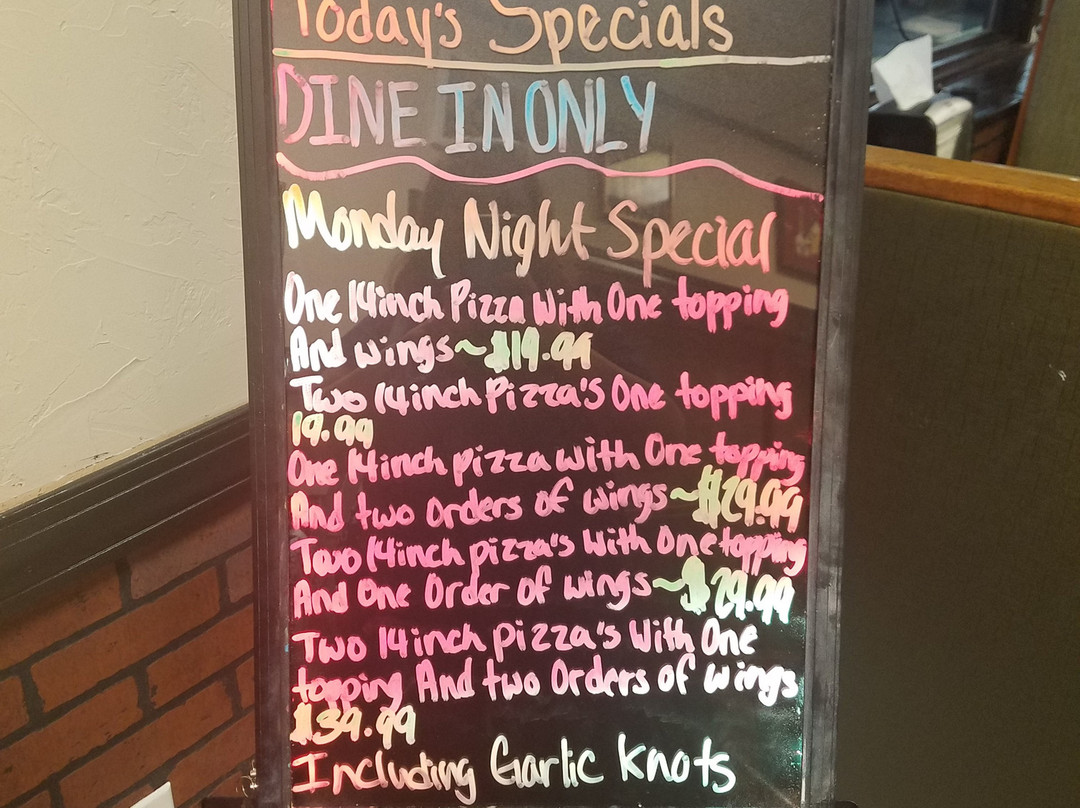 Today's Specials
DINE IN ONLY
Monday Night Special
One 14inch Pizza With One topping
And wings~$19.99
Two 14inch Pizza's One topping
19.99
One 14inch pizza with One topping
And two Orders of wings~$29.99
Two 14inch pizza's With One topping
And One Order of wings~$29.99
Two 14inch pizza's With One
topping And two Orders of wings
$39.99
Including Garlic knots